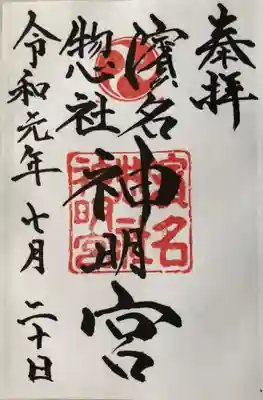 奉拝
濱名
惣社
神明宮
令和元年七月二十日
濱名
惣社
神明宮